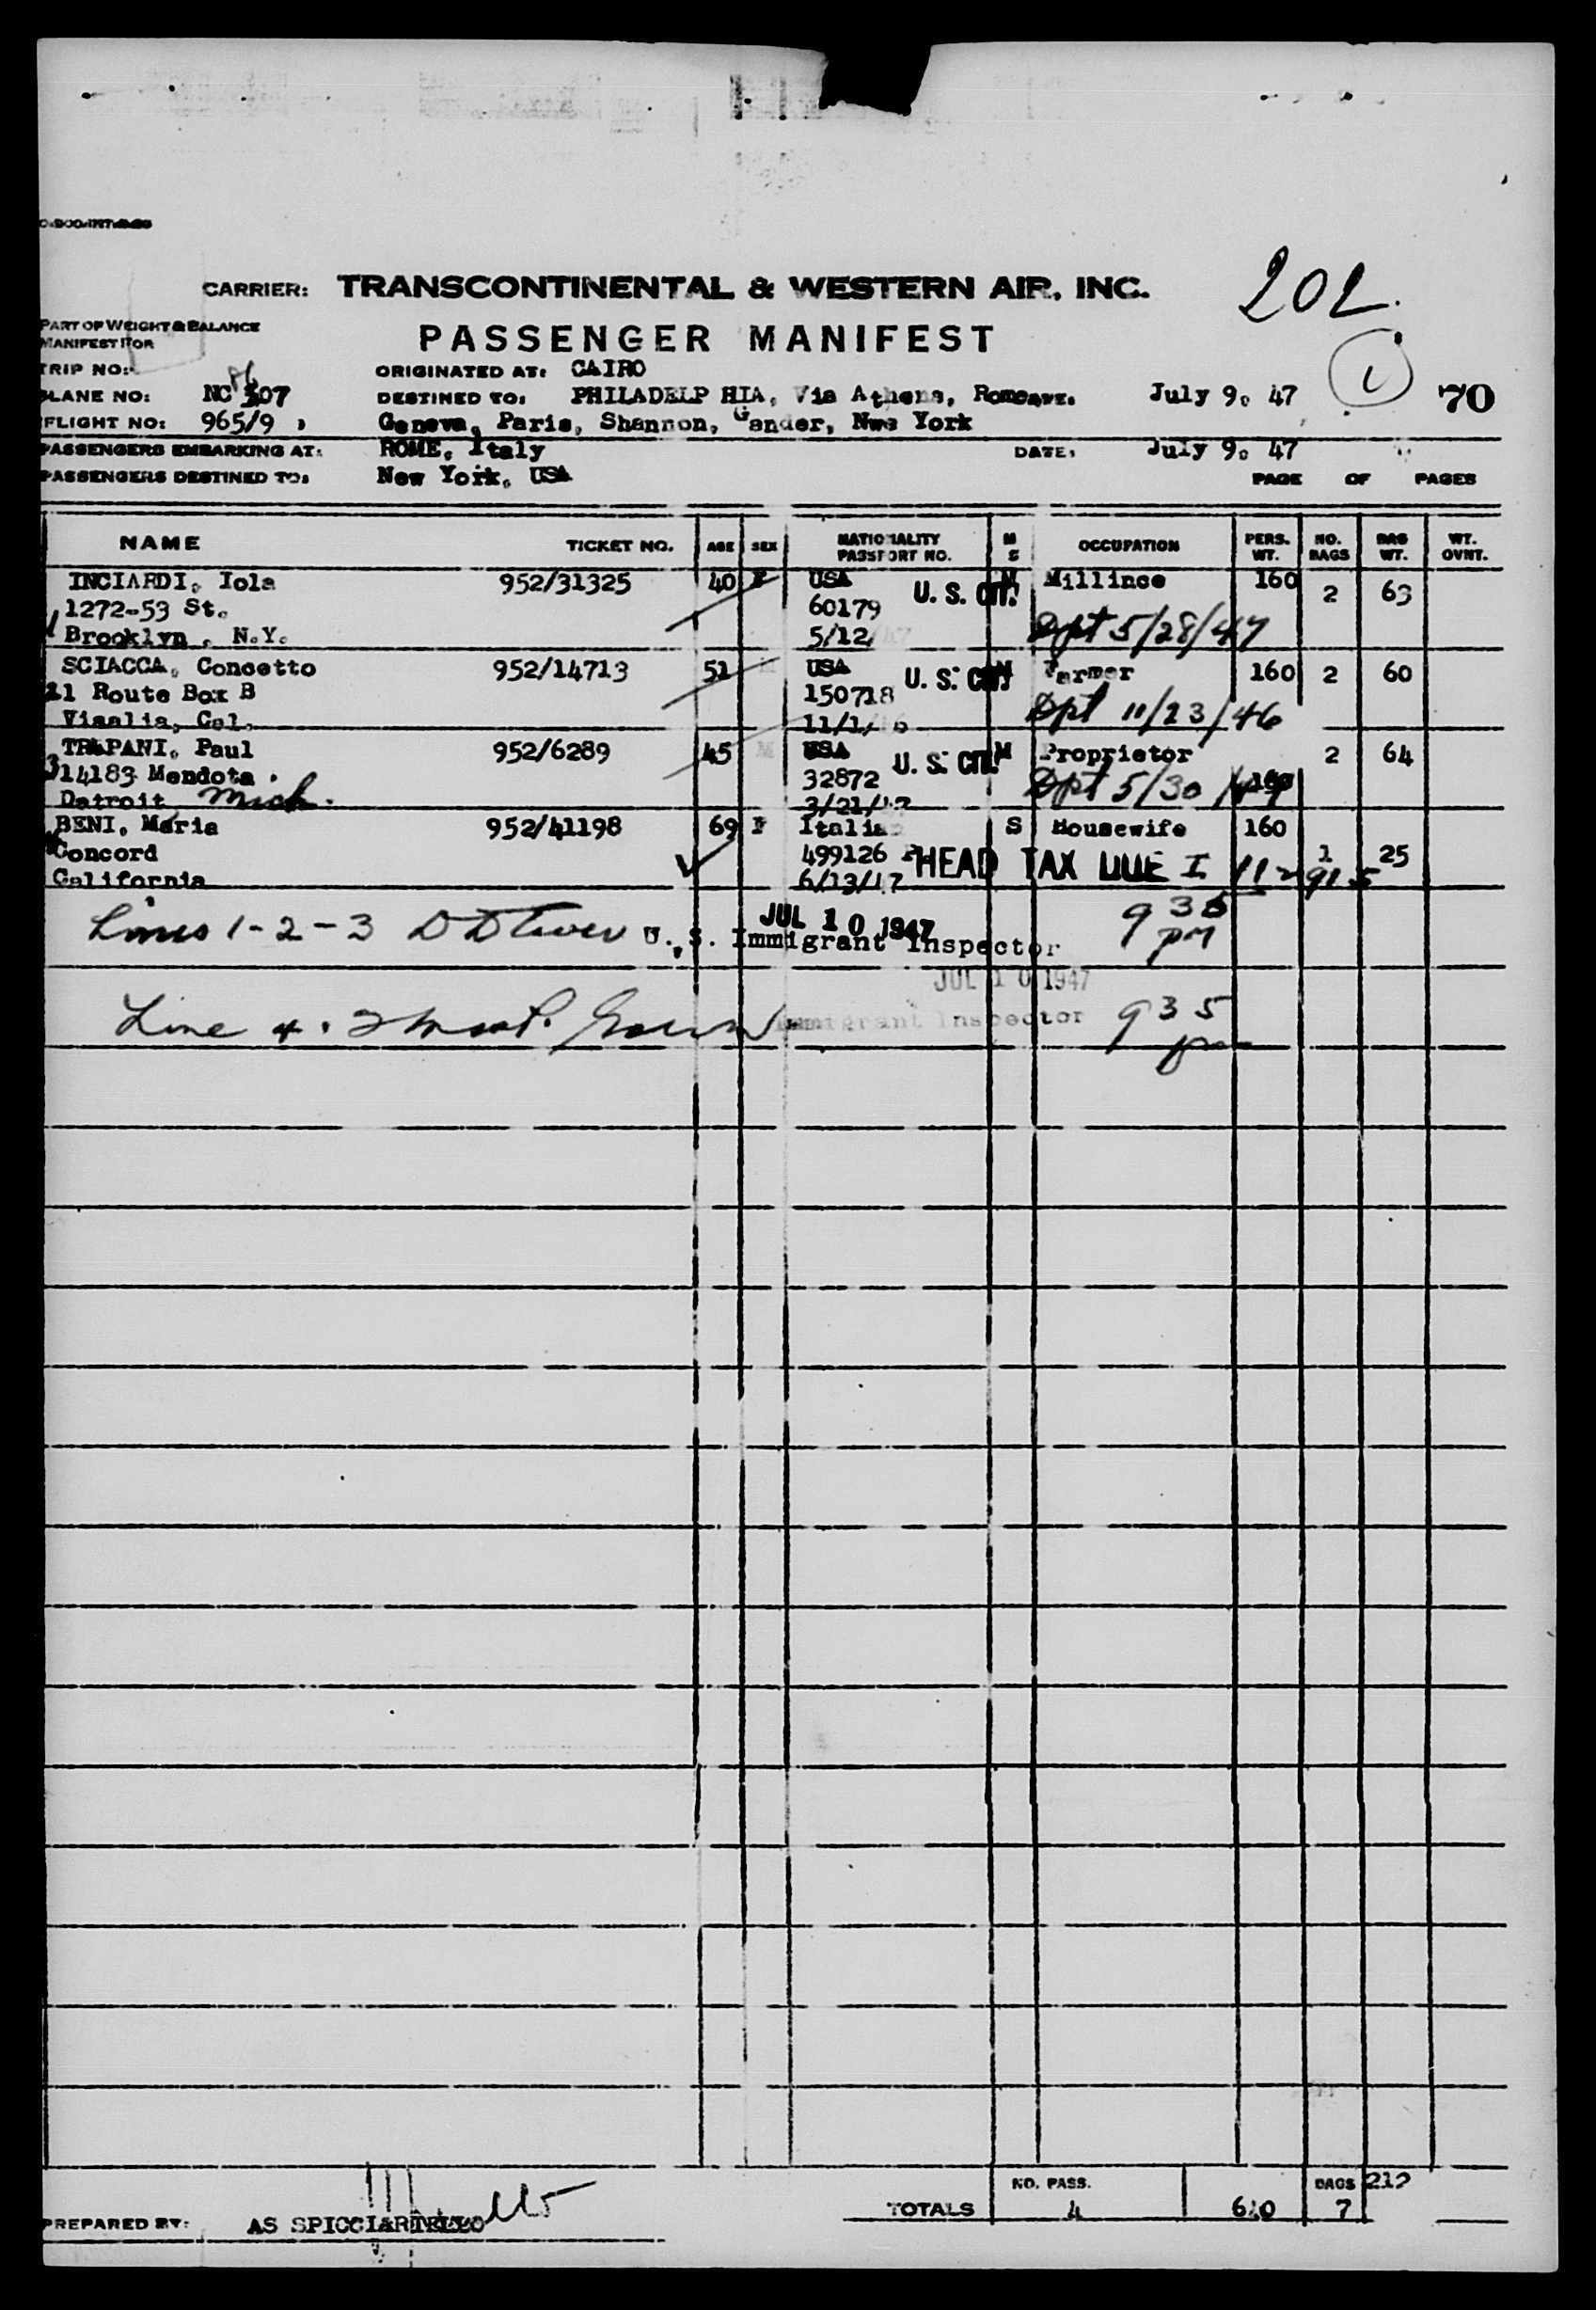 CARRIER: TRANSCONTINENTAL & WESTERN AIR, INC.
202.
PART OF WEIGHT & BALANCE
MANIFEST FOR
PASSENGER MANIFEST
1
TRIP NO:
ORIGINATED AT: CAIRO
PLANE NO: NC 86 507
DESTINED TO: PHILADELP HIA, Via Athens, Rome July 9. 47
70
FLIGHT NO: 965/9
Geneva, Paris, Shannon, Gander, Nwe York
PASSENGERS EMBARKING AT: ROME, Italy DATE: July 9. 47
PASSENGERS DESTINED TO: New York, USA PAGE OF PAGES
NAME TICKET NO. AGE SEX NATIONALITY PASSPORT NO. M S OCCUPATION PERS. WT. NO. BAGS BAG WT. WT. OVNT.
INCIARDI, Iola 952/31325 40 F USA U. S. CIT. M Millince 160 2 63
1272-53 St. 60179
1 Brooklyn, N.Y. 5/12/47 Dpt 5/28/47
SCIACCA, Concetto 952/14713 51 M USA U. S. CIT. M Farmer 160 2 60
21 Route Box B 150718
Visalia, Cal. 11/1/ 6 Dpt 11/23/46
TRAPANI, Paul 952/6289 45 M USA U. S. CIT. M Proprietor 2 64
3 14183 Mendota 32872 Dpt 5/30/47 160
Detroit Mich. 3/21/47
BENI, Maria 952/41198 69 F Italia S Housewife 160
Concord 499126 P HEAD TAX DUE I 1 25
California 6/13/47
Lines 1-2-3 U. S. Immigrant Inspector JUL 10 1947 935 pm
JUL 10 1947
Line 4. Immigrant Inspector 935 pm
NO. PASS. BAGS 212
TOTALS 4 640 7
PREPARED BY: AS SPICCIARIELLO